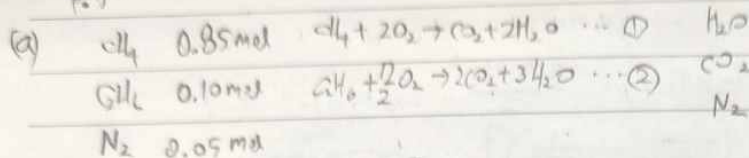 (a) CH4 0.85mol CH4 + 2O2 → CO2 + 2H2O ... ① H2O
C2H6 0.10mol C2H6 + 7/2 O2 → 2CO2 + 3H2O ... ② CO2
N2 0.05mol N2